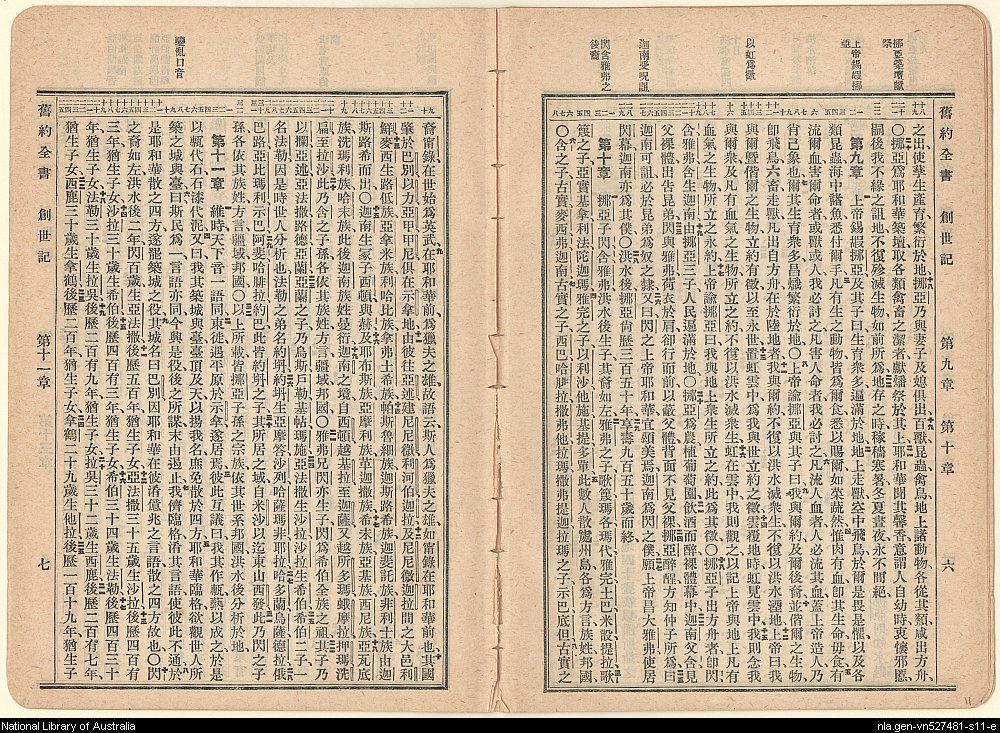 舊約全書
創世記
第九章
第十章
六
挪亞築壇獻祭
上帝錫嘏挪亞
以虹為徵
迦南受呪詛
閃含雅弗之後裔
之出使孳生產育繁衍於地挪亞乃與妻子及媳俱出百獸昆蟲禽鳥地上諸動物各從其類咸出方舟
〇挪亞為耶和華築壇取各類禽畜之潔者獻燔祭於其上耶和華聞其馨香意謂人自幼時衷懷邪慝
嗣後我不緣之詛地不復殄滅生物如前所為地存之時稼穡寒暑冬夏晝夜永不間絕
第九章
上帝錫嘏挪亞及其子曰生育眾多遍滿於地地上走獸空中飛鳥於爾是畏是懼以及各
類昆蟲海中諸魚悉付爾手凡有生之動物皆為爾食悉以賜爾如菜蔬然惟肉有血即其生命毋食
流爾血害爾命者或獸或人我必討之凡害人命者我必討之凡流人血者人必流其血蓋上帝造人乃
肖己象也爾其生育眾多昌熾繁衍於地〇上帝諭挪亞與其子曰我與爾約及爾後裔並偕爾之生物
即飛鳥六畜走獸凡出自方舟在於陸地者我與爾約不復以洪水滅眾生不復以洪水湮地上帝曰我
與爾暨偕爾之生物立約有徵以至永世置虹雲中為我與世立約之徵雲覆地時虹見雲中我則念我
與爾眾及凡有血氣之生物所立之約不復以洪水滅眾生虹在雲中我則觀之以記上帝與地上凡有
血氣之生物所立之永約上帝諭挪亞曰我與地上眾生所立之約此為其徵〇挪亞子出方舟者即閃
含雅弗含生迦南由挪亞三子人民遍滿於地〇挪亞為農植葡萄園飲酒而醉裸體幕中迦南父含見
父裸體出告昆弟閃與雅弗荷衣於肩卻行而前以蔽父體背面不見父裸挪亞醉醒方知仲子所為曰
迦南可詛必於昆弟為奴之隸又曰閃之上帝耶和華宜頌美焉迦南為閃之僕願上帝昌大雅弗使居
閃幕迦南亦為其僕〇洪水後挪亞尚歷三百五十年享壽九百五十歲而終
第十章
挪亞子閃含雅弗洪水後生子其裔如左雅弗之子歌篾瑪各瑪代雅完土巴米設提拉歌
篾之子亞實基拿利法陀迦瑪雅完之子以利沙他施基提多單此數人散處州島各為方言族姓邦國
〇含之子古實麥西弗迦南古實之子西巴哈腓拉撒弗他拉瑪撒弗提迦拉瑪之子示巴底但古實之
舊約全書
創世記
第十一章
七
變亂口音
裔甯錄在世始為英武在耶和華前為獵夫之雄故語云斯人為獵夫之雄如甯錄在耶和華前也其國
肇於巴別以力亞甲甲尼俱在示拿地由彼往亞述建尼尼微利河伯迦拉及尼尼微迦拉間之大邑利
鮮麥西生路低族亞拿米族利哈比族拿弗土希族帕斯魯細族迦斯路希族迦斐託族非利士族由迦
斯路希而出〇迦南生冢子西頓與赫及耶布斯族亞摩利族革迦撒族希未族亞基族西尼族亞瓦底
族洗瑪利族哈末族此後迦南族姓曼衍迦南之境自西頓越基拉至迦薩又越所多瑪蛾摩拉押瑪洗
扁至拉沙此乃含之子孫各依其族姓方言疆域邦國〇雅弗兄閃亦生子閃為希伯全族之祖其子乃
以攔亞述亞法撒路德亞蘭亞蘭之子乃烏斯戶勒基帖瑪施亞法撒生沙拉沙拉生希伯希伯二子一
名法勒因是時世人分析也法勒之弟名約坍約坍生亞摩答沙列哈薩瑪非耶拉哈多蘭烏薩德拉俄
巴路亞比瑪利示巴阿斐哈腓拉約巴此皆約坍之子其所居之域自米沙以迄東山西發此乃閃之子
孫各依其族姓方言疆域邦國〇以上所載皆挪亞子孫之宗族依其世系邦國洪水後分析於地
第十一章
維時天下音一語同東徙遇平原於示拿遂居焉彼此互議曰我其作甎熱以成之於是
以甎代石石漆代泥又曰我其築城與臺臺頂及天以揚我名庶免散於四方耶和華臨格欲觀世人所
築之城與臺曰斯民為一言語亦同今興是役後之所謀末由遏止我儕臨格淆其言語使彼此不通於
是耶和華散之四方遂罷築城之役其城名曰巴別因耶和華在彼淆億兆之言語散之四方故也〇閃
之裔如左洪水後二年閃百歲生亞法撒後歷五百年猶生子女亞法撒三十五歲生沙拉後歷四百有
三年猶生子女沙拉三十歲生希伯後歷四百有三年猶生子女希伯三十四歲生法勒後歷四百三十
年猶生子女法勒三十歲生拉吳後歷二百有九年猶生子女拉吳三十二歲生西鹿後歷二百有七年
猶生子女西鹿三十歲生拿鶴後歷二百年猶生子女拿鶴二十九歲生他拉後歷一百十九年猶生子
National Library of Australia
nla.gen-vn527481-s11-e